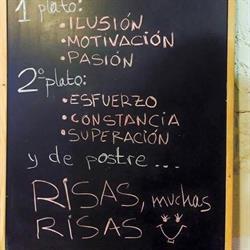 1 plato:
• ILUSIÓN
• MOTIVACIÓN
• PASIÓN
2º plato:
• ESFUERZO
• CONSTANCIA
• SUPERACIÓN
y de postre...
RISAS, muchas
RISAS